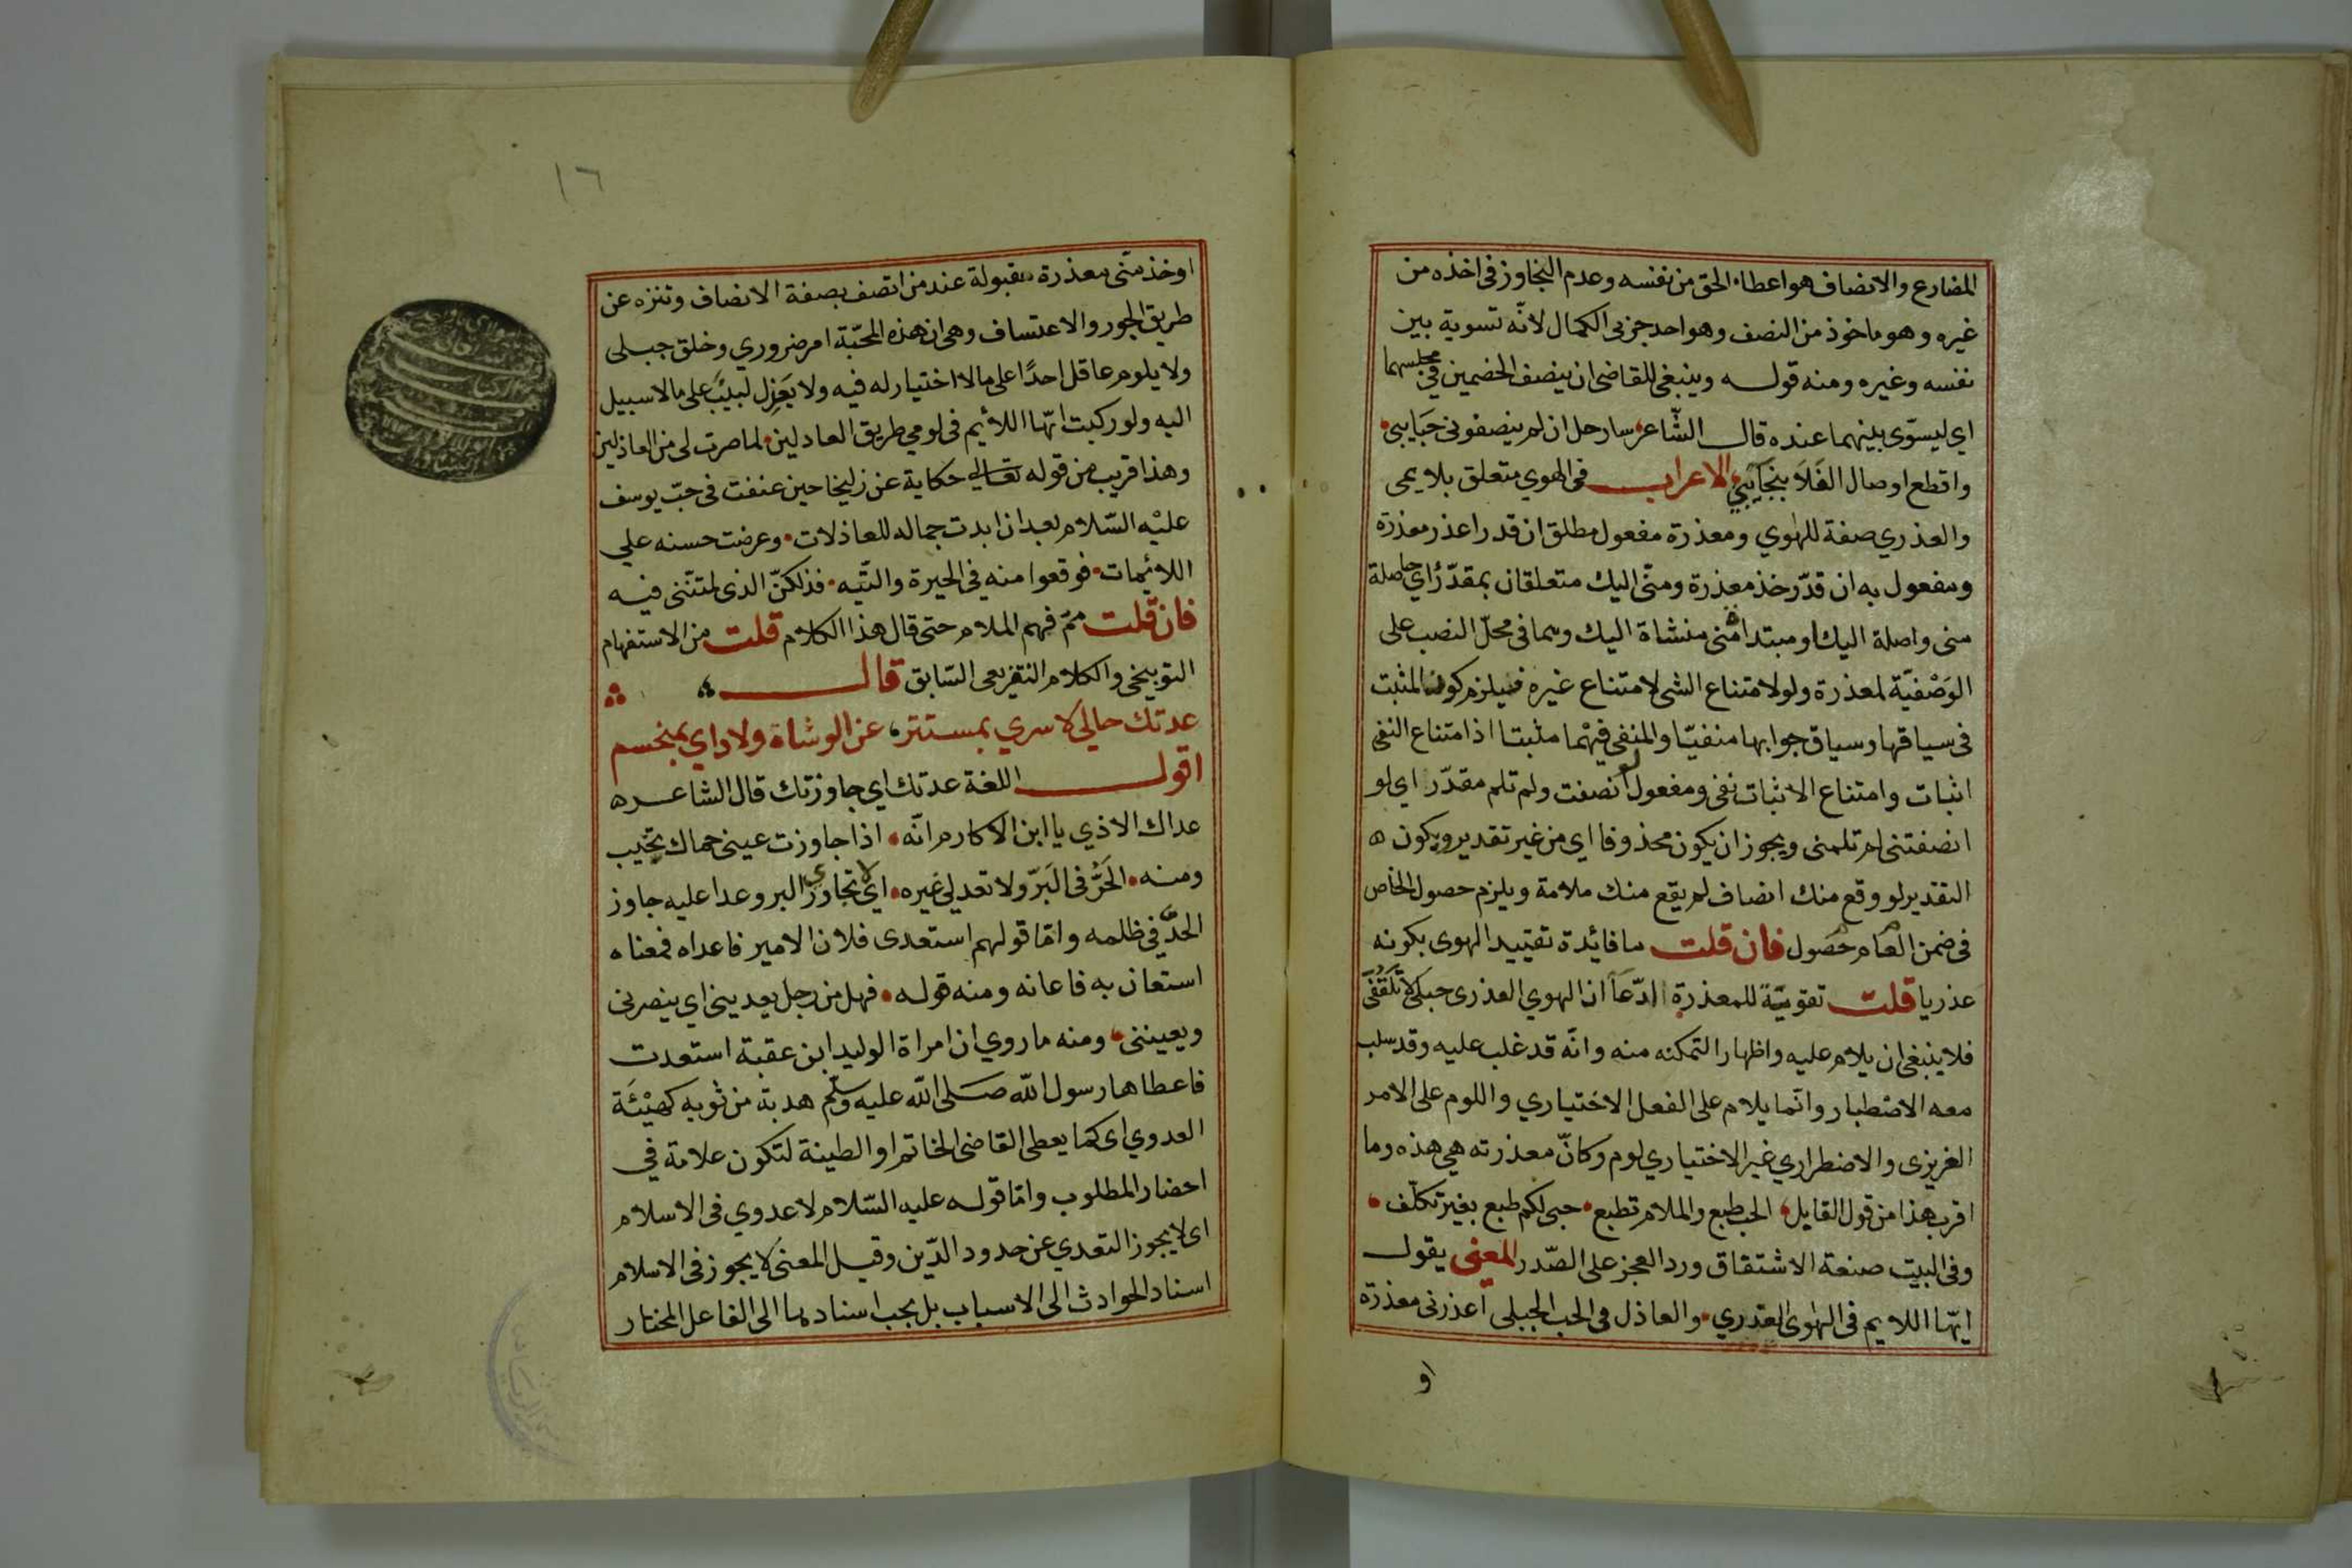 المضارع والانصاف هو اعطاء الحق من نفسه وعدم التجاوز في اخذه من
غيره وهو ماخوذ من النصف وهو احد جزئى الكمال لانّه تسوية بين
نفسه وغيره ومنه قولــه وينبغى للقاضى ان ينصف الخصمين في مجلسهما
اي ليسوّى بينهما عنده قال الشّاعر سارحل ان لم ينصفونى حبايبى
واقطع اوصال الفَلَا بنجَايَبِي الاعراب فى الهوي متعلق بلايمى
والعذري صفة للهوي ومعذرة مفعول مطلق ان قدر اعذر معذرة
ومفعول به ان قدّر خذ معذرة ومنّى اليك متعلقان بمقدّر اي حاصلة
منى واصلة اليك او مبتداة منى منشاة اليك وهما فى محلّ النصب على
الوَصْفيّة لمعذرة ولو لامتناع الشى لامتناع غيره فيلزم كون المثبت
فى سياقها وسياق جوابها منفيّا والمنفى فيهْما مثبتا اذ امتناع النفى
اثبات وامتناع الاثبات نفى ومفعول لو انصفت ولم تلم مقدّر اي لو
انصفتنى لم تلمنى ويجوز ان يكون محذوفا اي من غير تقدير ويكون ه
التقدير لو وقع منك انصاف لم يقع منك ملامة ويلزم حصول الخاص
فى ضمن العام حصول فان قلت ما فائدة تقييد الهوى بكونه
عذريا قلت تقوييّة للمعذرة ادّعاً ان الهوي العذرى جبلى لا تكلّفى
فلا ينبغى ان يلام عليه واظهارا لتمكنه منه وانّه قد غلب عليه وقد سلب
معه الاصْطبار وانّما يلام على الفعل الاختياري واللوم على الامر
الغريزى والاضطراري غير الاختياري لوم وكانّ معذرته هي هذه وما
اقرب هذا من قول القايل الحب طبع والملام تطبع حبى لكم طبع بغير تكلّف
وفى البيت صنعة الاشتقاق ورد العجز على الصّدر المعنى يقول
ايّها اللايم فى الهوى العذري والعاذل فى الحب الجبلى اعذرنى معذرة
او
١٦
اوخذ منّى معذرة مقبولة عند من اتصف بصفة الانصاف وتنزه عن
طريق الجور والاعتساف وهى ان هذه المحبّة امر ضروري وخلق جبلى
ولا يلوم عاقل احدًا على ما لا اختيار له فيه ولا يعَذِل لبيبٌ على ما لا سبيل
اليه ولو ركبت ايّها اللائم فى لومي طريق العادلين لما صرت لى من العاذلين
وهذا قريب من قوله تعالى حكاية عن زليخا حين عنفت فى حبّ يوسف
عليْه السّلام بعد ان ابدت جماله للعاذلات وعرضت حسنه علي
اللائمات فوقعوا منه في الحيرة والتّيه فذلكنّ الذى لمتنّنى فيـه
فان قلت ممّ فهم الملام حتى قال هذا الكلام قلت من الاستفهام
التوبيخى والكلام التقريعى السّابق قال
عدتك حالي لا سري بمستتر عن الوشاة ولا داي بمنحسم
اقول اللغة عدتك اي جاوزتك قال الشاعر ه
عداك الاذي يا ابن الاكارم انّه اذا جاوزت عينى حماك تخيب
ومنـه الحَرُّ فى البَرّ ولا تعدلي غيره اي لا تجاوزي البر وعدا عليه جاوز
الحدَّ في ظلمه وامّا قولهم استعدى فلان الامير فاعداه فمعناه
استعان به فاعانه ومنه قوله فهل من رجل يعديني اي ينصرنى
ويعيننى ومنه ما روي ان امراة الوليد ابن عقبة استعدت
فاعطاها رسول اللّه صلى اللّه عليه وسلّم هدبة من ثوبه كهيْئَة
العدوي اى كما يعطى القاضى الخاتم او الطينة لتكون علامة في
احضار المطلوب وامّا قولـه عليه السّلام لا عدوي فى الاسلام
اى لا يجوز التعدي عن حدود الدّين وقيل المعنى لا يجوز فى الاسلام
اسناد الحوادث الى الاسباب بل يجب اسنادها الى الفاعل المختار